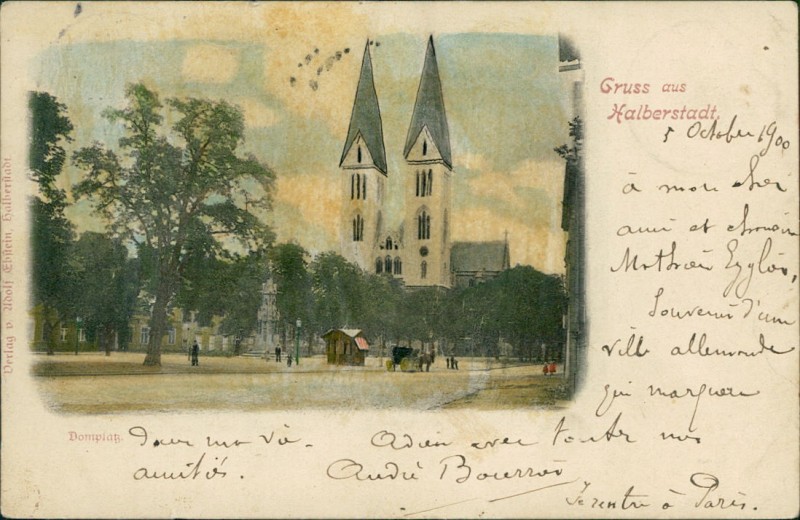 Gruss aus
Halberstadt.
5 October 1900
à mon cher
ami et
Souvenir d'une
ville allemande
qui marquera
Verlag v. Adolf Ebstein, Halberstadt.
Domplatz.
dans ma vie.
Adieu avec toutes mes
amitiés.
André
Je rentre à Paris.